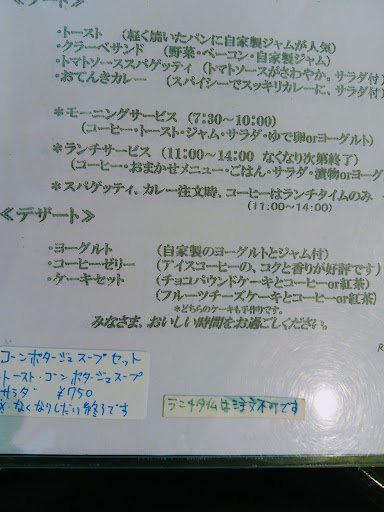 ・トースト (軽く焼いたパンに自家製ジャムが人気)
・クラーベサンド (野菜・ベーコン・自家製ジャム)
・トマトソーススパゲティ (トマトソースがさわやか。サラダ付)
・おてんきカレー (スパイシーでスッキリカレーに、サラダ付)
＊モーニングサービス (7:30～10:00)
(コーヒー・トースト・ジャム・サラダ・ゆで卵orヨーグルト)
＊ランチサービス (11:00～14:00 なくなり次第終了)
(コーヒー・おまかせメニュー・ごはん・サラダ・漬物orヨーグ
＊スパゲッティ、カレー注文時、コーヒーはランチタイムのみ
(11:00～14:00)
≪デザート≫
・ヨーグルト (自家製のヨーグルトとジャム付)
・コーヒーゼリー (アイスコーヒーの、コクと香りが好評です)
・ケーキセット (チョコパウンドケーキとコーヒーor紅茶)
(フルーツチーズケーキとコーヒーor紅茶)
＊どちらのケーキも手作りです。
みなさま、おいしい時間をお過ごしください。
R
コーンポタージュスープセット
トースト・コーンポタージュスープ
サラダ・ ¥750
※なくなりしだい終了です
ランチタイムは注文不可です